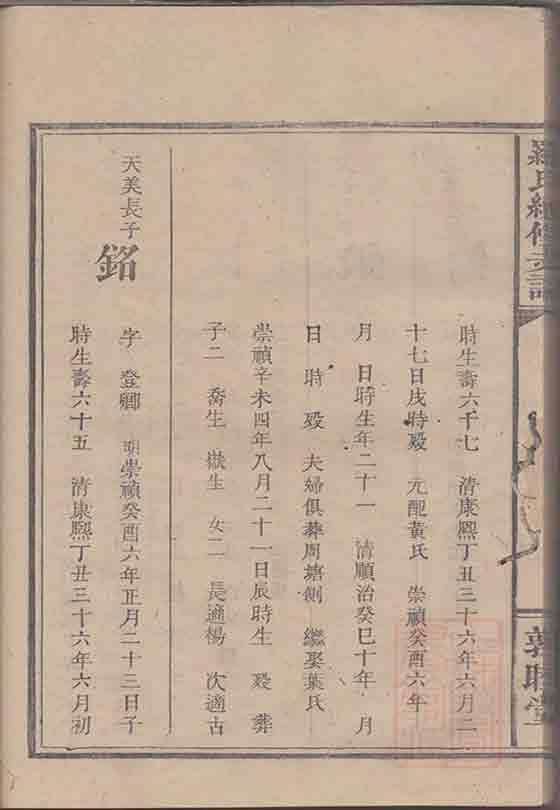 羅氏續修支譜
敦睦堂
時生壽六十七　清康熙丁丑三十六年六月二
十七日戌時歿　元配黃氏　崇禎癸酉六年
月　日時生年二十一　清順治癸巳十年　月
日　時　歿　夫婦俱葬周塘側　繼娶葉氏
崇禎辛未四年八月二十一日辰時生　歿　葬
子二　喬生　嶽生　女二　長適楊　次適古
天美長子
銘
字　登卿　明崇禎癸酉六年正月二十三日子
時生壽六十五　清康熙丁丑三十六年六月初